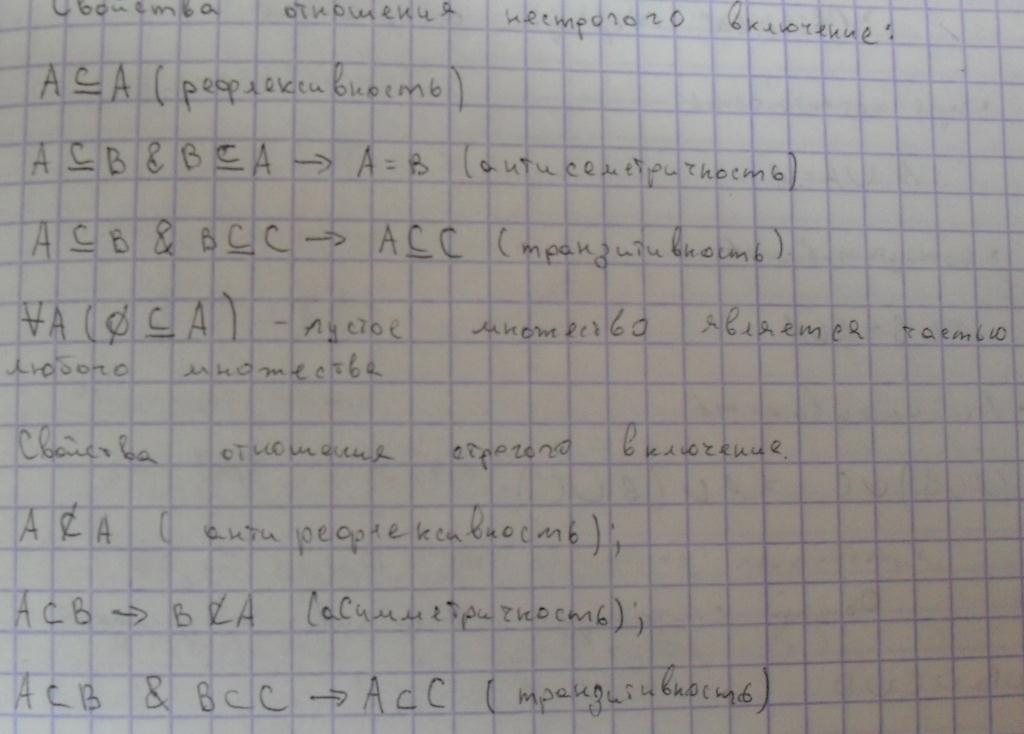 Свойства отношения нестрогого включение:
A ⊆ A (рефлексивность)
A ⊆ B & B ⊆ A → A = B (антисеметричность)
A ⊆ B & B ⊆ C → A ⊆ C (транзитивность)
∀A (∅ ⊆ A) - пустое множество является частью
любого множества
Свойства отношения строгого включение.
A ⊄ A (антирефлексивность);
A ⊂ B → B ⊄ A (асимметричность);
A ⊂ B & B ⊂ C → A ⊂ C (транзитивность)